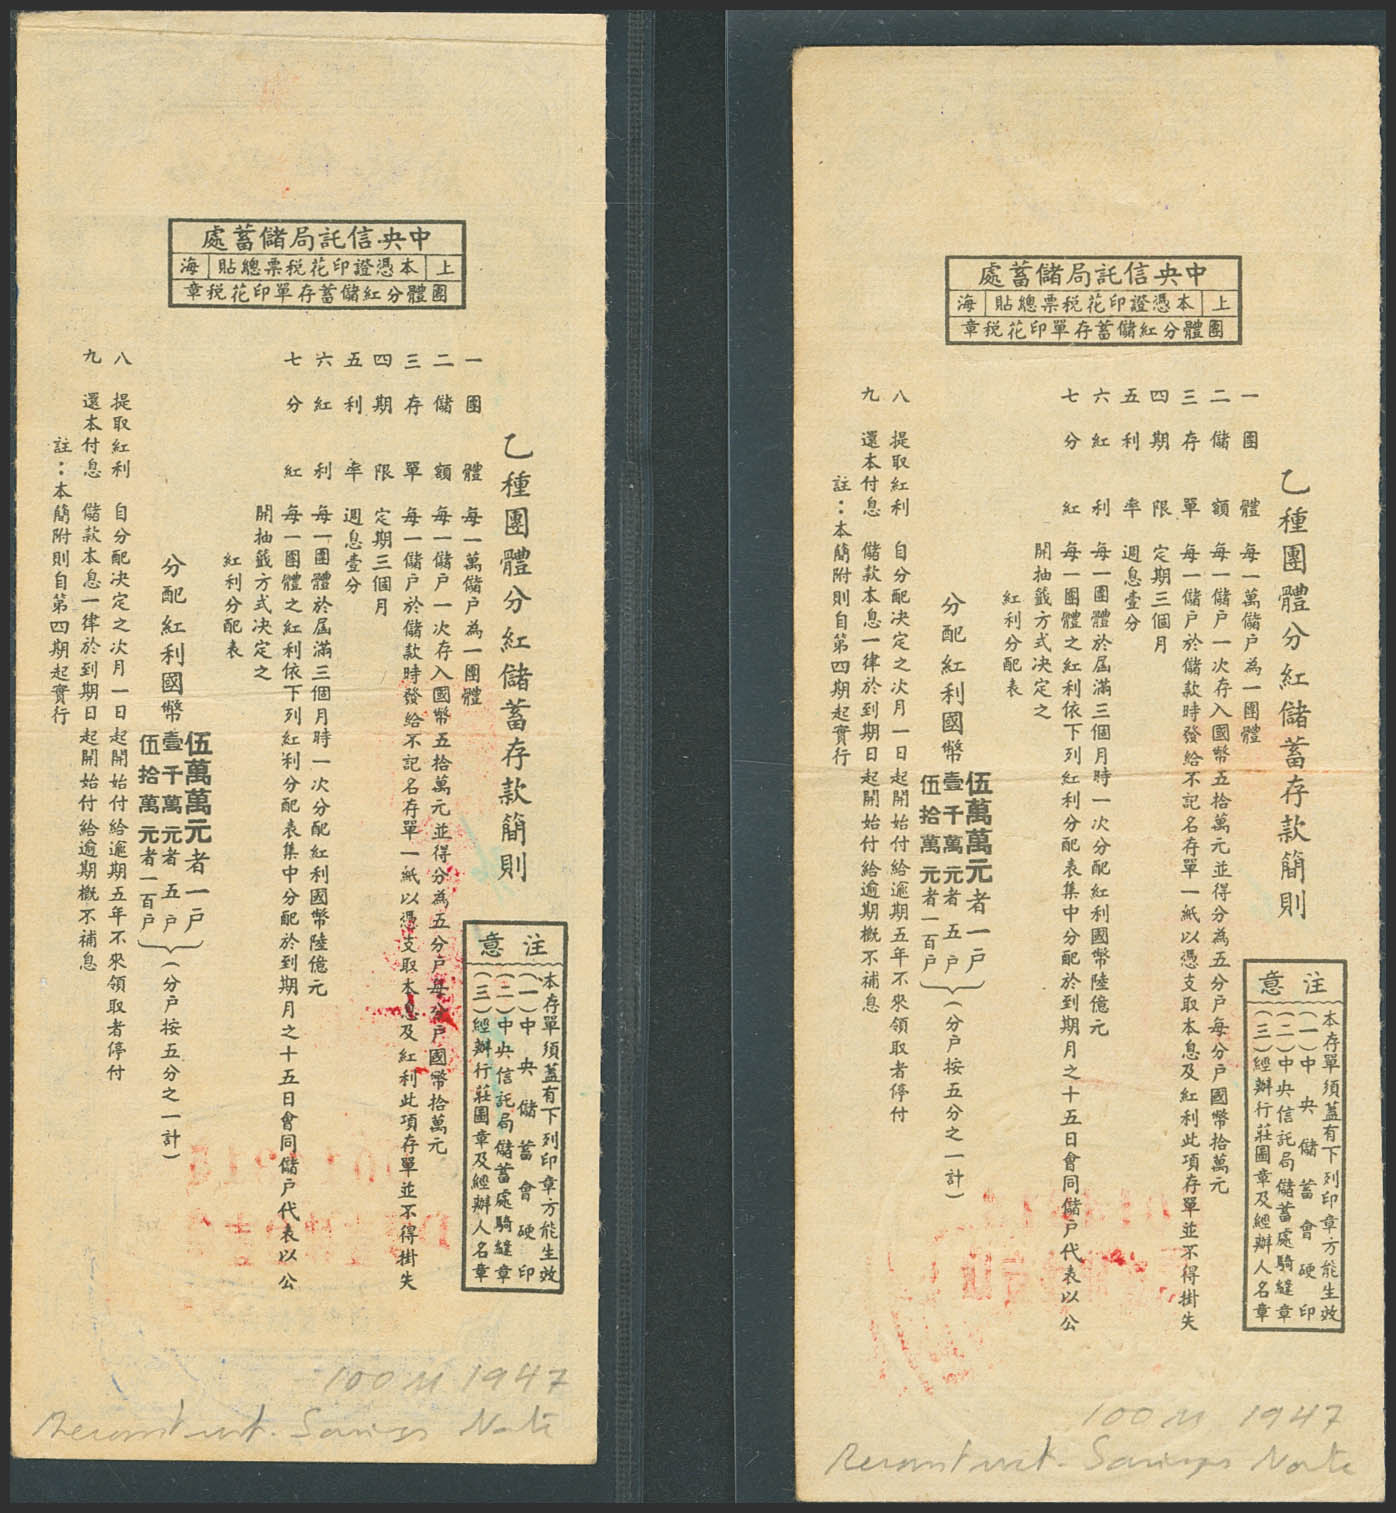 中央信託局儲蓄處
上 本憑證印花稅票總貼 海
團體分紅儲蓄存單印花稅章
乙種團體分紅儲蓄存款簡則
一 團體 每一萬儲戶為一團體
二 儲額 每一儲戶一次存入國幣五拾萬元並得分為五分戶每分戶國幣拾萬元
三 存單 每一儲戶於儲款時發給不記名存單一紙以憑支取本息及紅利此項存單並不得掛失
四 期限 定期三個月
五 利率 週息壹分
六 紅利 每一團體於屆滿三個月時一次分配紅利國幣陸億元
七 分紅 每一團體之紅利依下列紅利分配表集中分配於到期月之十五日會同儲戶代表以公
開抽籤方式決定之
紅利分配表
分配紅利國幣
伍萬萬元者一戶
壹千萬元者五戶
伍拾萬元者一百戶
(分戶按五分之一計)
八 提取紅利 自分配決定之次月一日起開始付給逾期五年不來領取者停付
九 還本付息 儲款本息一律於到期日起開始付給逾期概不補息
註：本簡附則自第四期起實行
注意
本存單須蓋有下列印章方能生效
(一)中央儲蓄會硬印
(二)中央信託局儲蓄處騎縫章
(三)經辦行莊圖章及經辦人名章
100 M 1947
Reconstruct. Savings Note
中央信託局儲蓄處
上 本憑證印花稅票總貼 海
團體分紅儲蓄存單印花稅章
乙種團體分紅儲蓄存款簡則
一 團體 每一萬儲戶為一團體
二 儲額 每一儲戶一次存入國幣五拾萬元並得分為五分戶每分戶國幣拾萬元
三 存單 每一儲戶於儲款時發給不記名存單一紙以憑支取本息及紅利此項存單並不得掛失
四 期限 定期三個月
五 利率 週息壹分
六 紅利 每一團體於屆滿三個月時一次分配紅利國幣陸億元
七 分紅 每一團體之紅利依下列紅利分配表集中分配於到期月之十五日會同儲戶代表以公
開抽籤方式決定之
紅利分配表
分配紅利國幣
伍萬萬元者一戶
壹千萬元者五戶
伍拾萬元者一百戶
(分戶按五分之一計)
八 提取紅利 自分配決定之次月一日起開始付給逾期五年不來領取者停付
九 還本付息 儲款本息一律於到期日起開始付給逾期概不補息
註：本簡附則自第四期起實行
注意
本存單須蓋有下列印章方能生效
(一)中央儲蓄會硬印
(二)中央信託局儲蓄處騎縫章
(三)經辦行莊圖章及經辦人名章
100 M 1947
Reconstruct. Savings Note